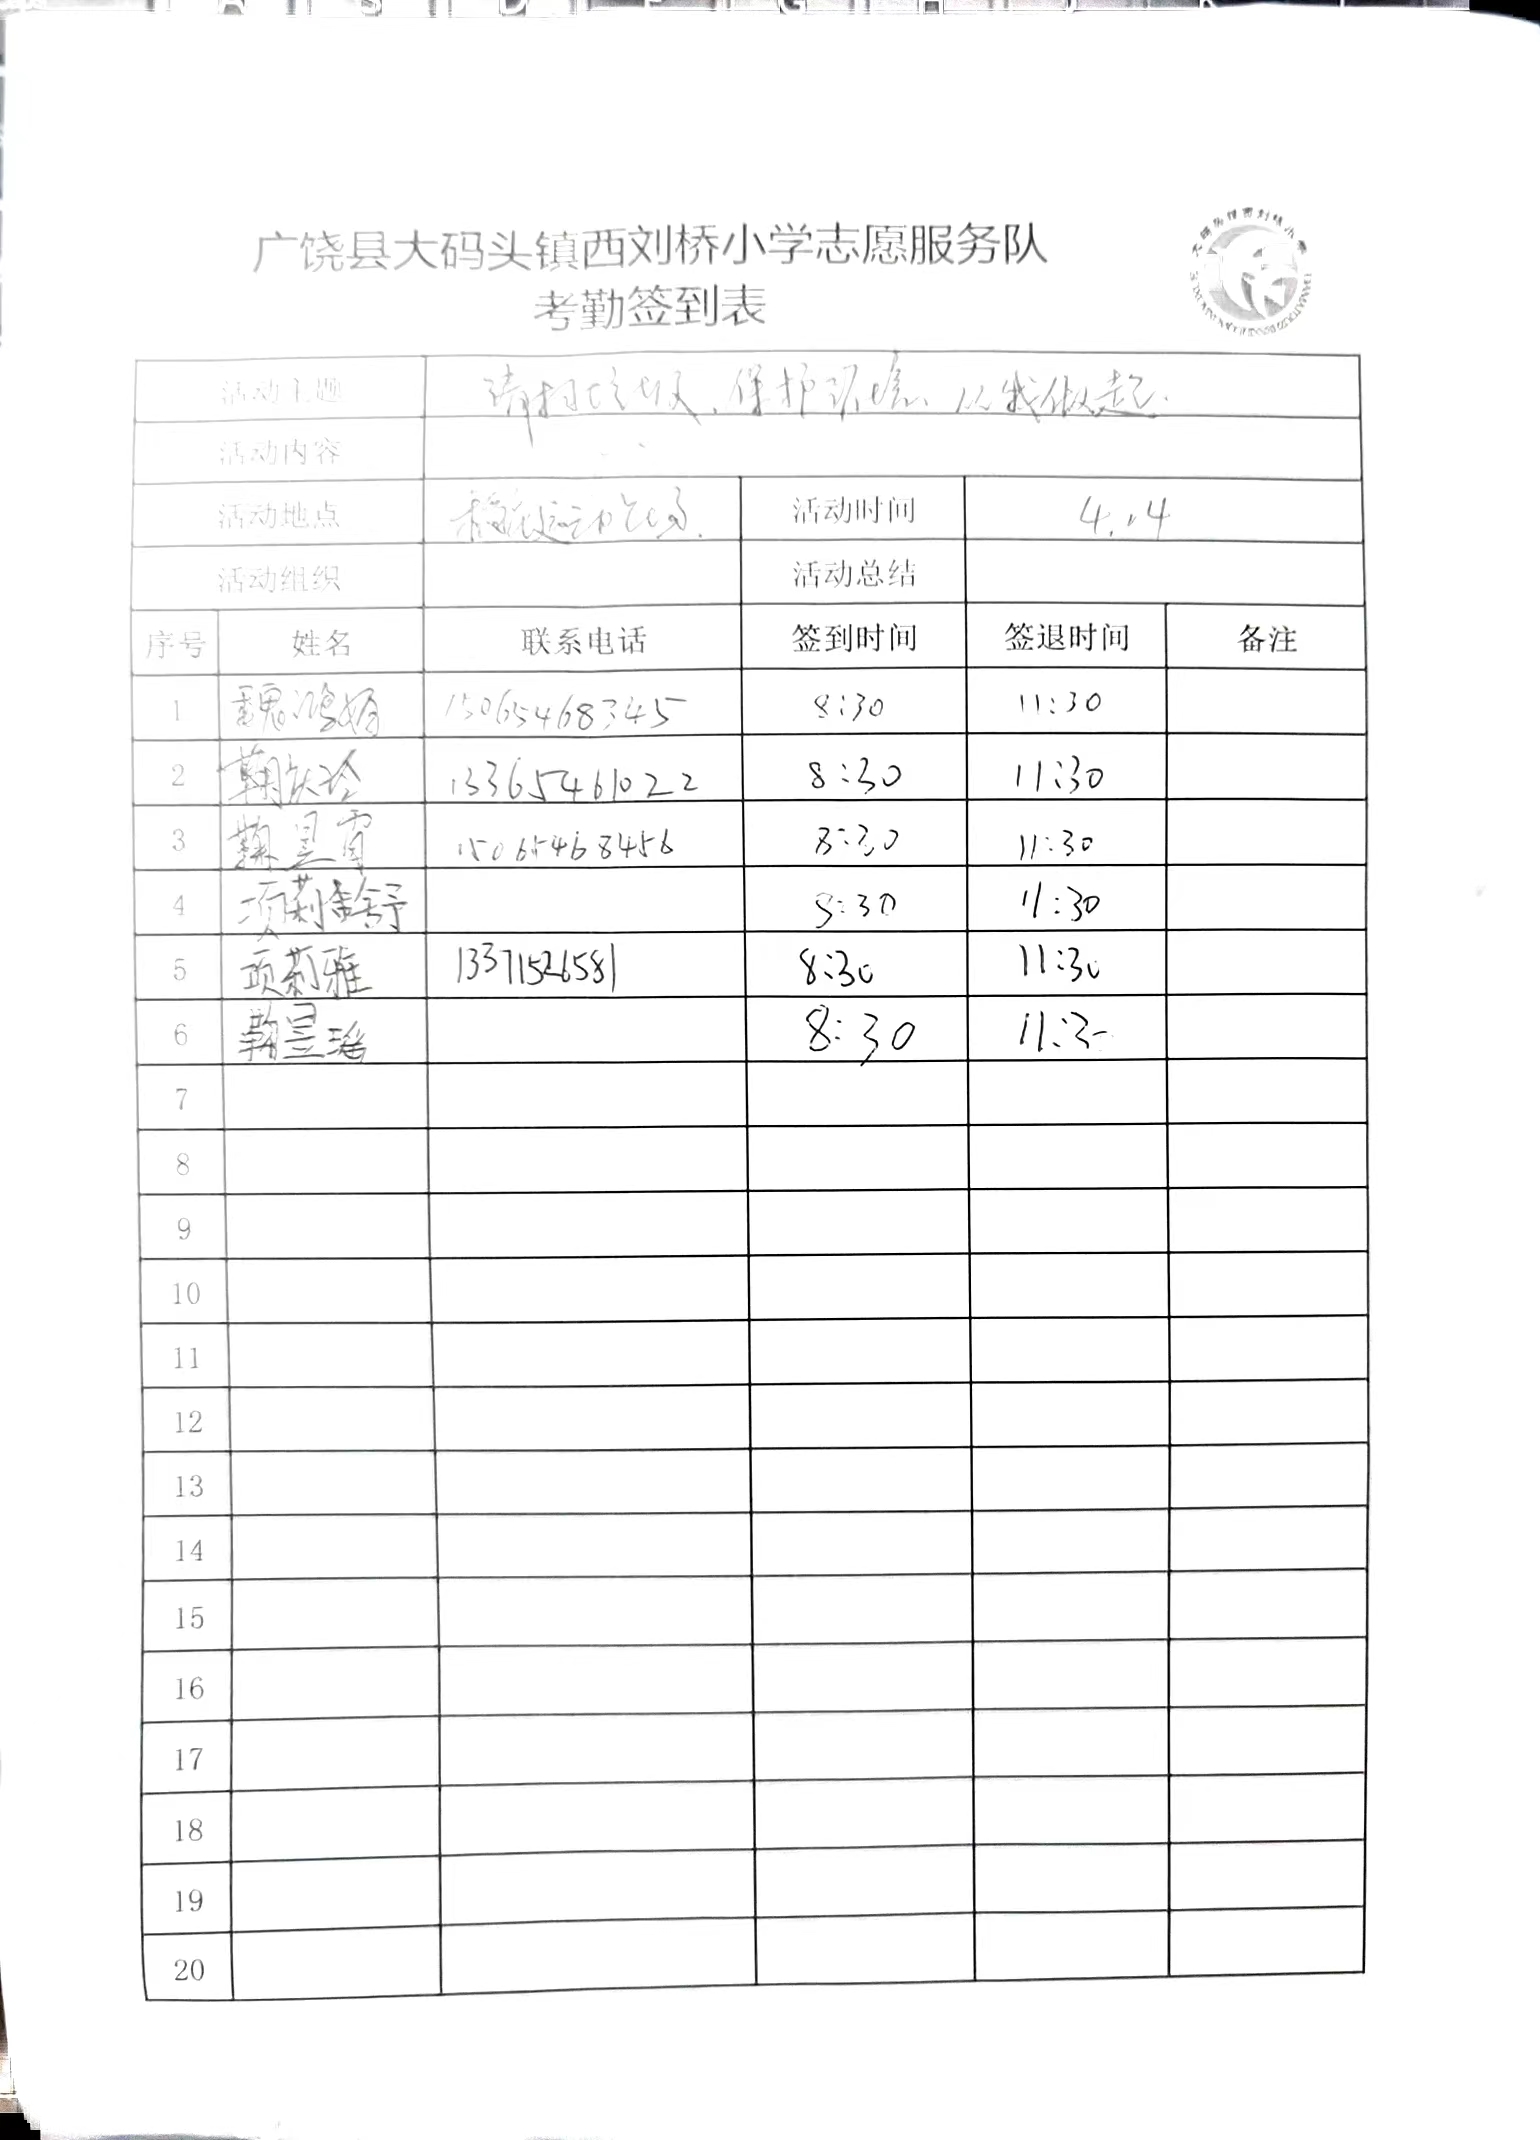 广饶县大码头镇西刘桥小学志愿服务队
考勤签到表
活动主题 清扫垃圾、保护环境、从我做起.
活动内容
活动地点 运动广场. 活动时间 4.14
活动组织 活动总结
序号 姓名 联系电话 签到时间 签退时间 备注
1 魏鸿娟 15065468345 8:30 11:30
2 13365461022 8:30 11:30
3 鞠昱霄 15065468456 8:30 11:30
4 项莉舒 8:30 11:30
5 项莉雅 13371526581 8:30 11:30
6 鞠昱瑶 8:30 11:3
7
8
9
10
11
12
13
14
15
16
17
18
19
20